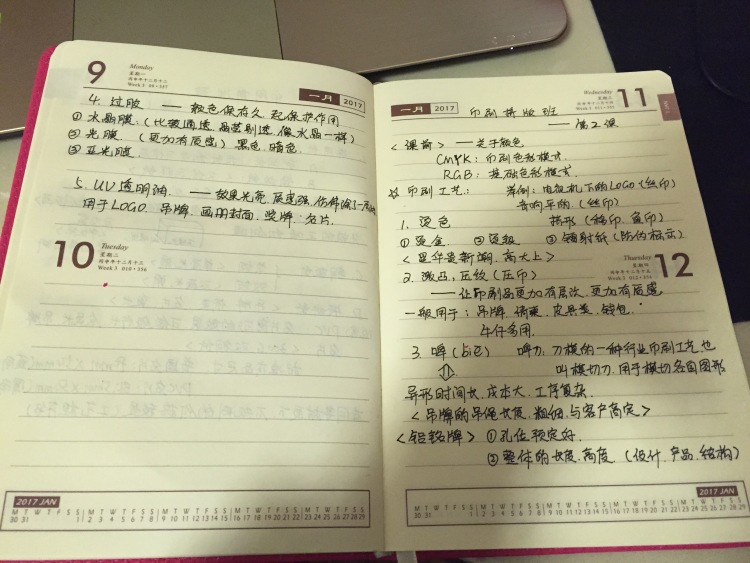 9
Monday
星期一
丙申年十二月十二
Week 3 09 + 357
一月 2017
4. 过胶 —— 颜色保存久. 起保护作用
① 水晶膜:(比较通透. 晶莹剔透. 像水晶一样)
② 光膜. (更加有质感) 黑色. 暗色.
③ 亚光膜.
5. UV透明油. —— 效果光亮.
用于LOGO. 吊牌. 画册封面. 名片.
10
Tuesday
星期二
丙申年十二月十三
Week 3 010 + 356
2017 JAN
M T W T F S S M T W T F S S M T W T F S S M T W T F S S M T W T F S S M T W T F S S
30 31 1 2 3 4 5 6 7 8 9 10 11 12 13 14 15 16 17 18 19 20 21 22 23 24 25 26 27 28 29
Wednesday
星期三
11
一月 2017
印刷排版班
—— 第2课
<课前> —— 关于颜色
CMYK: 印刷色彩模式.
RGB: 基础色彩模式.
☆ 印刷工艺: 举例: 电视机下的LOGO (丝印)
音响等的. (丝印)
1. 烫色
① 烫金. ② 烫银 ③ 镭射纸 (防伪标示)
<显华贵新潮. 高大上>
Thursday
星期四
12
2. 激凸, 压纹 (压印)
—— 让印刷品更加有层次. 更加有质感
一般用于: 吊牌. 皮具类. 钱包.
牛仔多用.
3. 啤 (bie) 啤刀: 刀模的一种行业印刷工艺. 也
⇕ 叫模切刀. 用于模切各国图形
异形时间长. 成本大. 工序复杂.
<吊牌的吊绳长度. 粗细. 与客户商定>
<铝铭牌> ① 孔位预定好.
② 整体的长度. 高度. (设计. 产品. 结构)
2017 JAN
M T W T F S S M T W T F S S M T W T F S S M T W T F S S M T W T F S S M T W T F S S
30 31 1 2 3 4 5 6 7 8 9 10 11 12 13 14 15 16 17 18 19 20 21 22 23 24 25 26 27 28 29